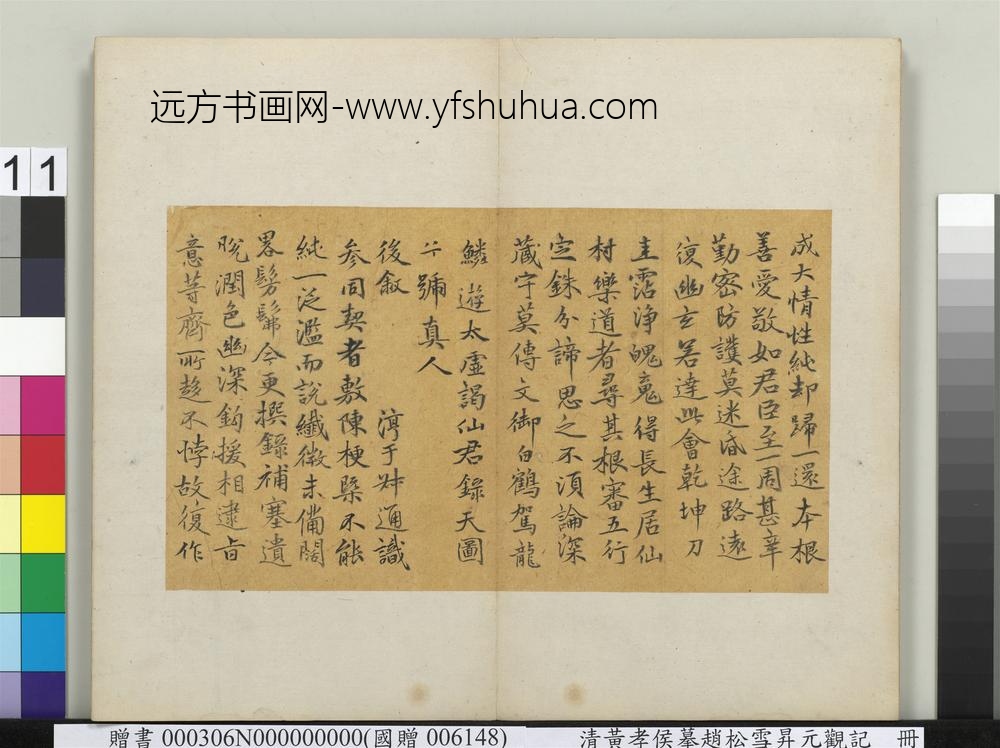 远方书画网-www.yfshuhua.com
成大情性純却歸一還本根
善愛敬如君臣至一周甚辛
勤密防護莫迷昏途路遠
復幽玄若達此會乾坤刀
圭霑淨魄䰟得長生居仙
村樂道者尋其根審五行
定銖分諦思之不須論深
藏守莫傳文御白鶴駕龍
鱗遊太虛謁仙君錄天圖
兮號真人
後敘 淳于叔通識
参同契者敷陳梗槩不能
純一泛濫而說纖微未備闊
畧髣髴今更撰錄補塞遺
脫潤色幽深鈎援相逮旨
意等齊所趍不悖故復作
11
贈書 000306N000000000(國贈 006148)
清黃孝侯摹趙松雪昇元觀記 冊